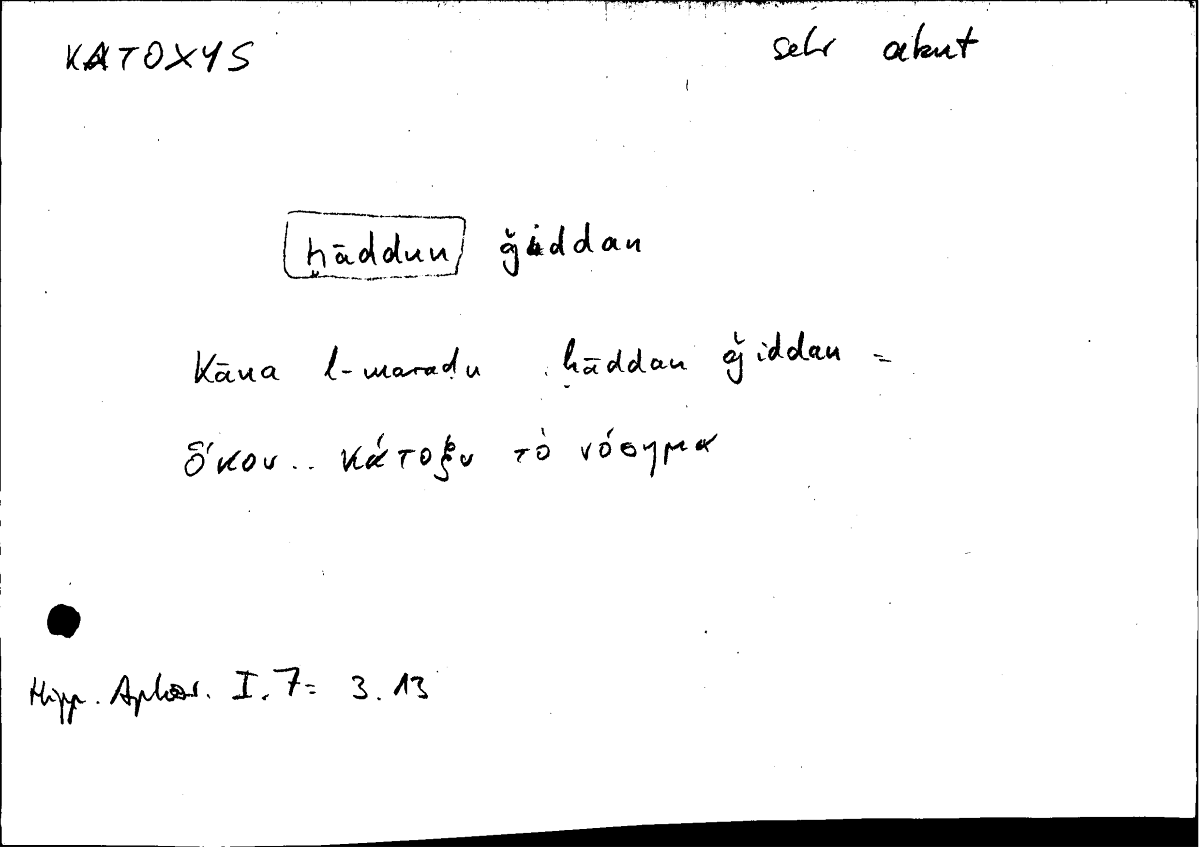 KATOXYS sehr akut
ḥāddun ǧiddan
Kāna l-maraḍu ḥāddan ǧiddan =
ὅκου.. κάτοξυ τὸ νόσημα
Hipp. Aphor. I.7= 3.13